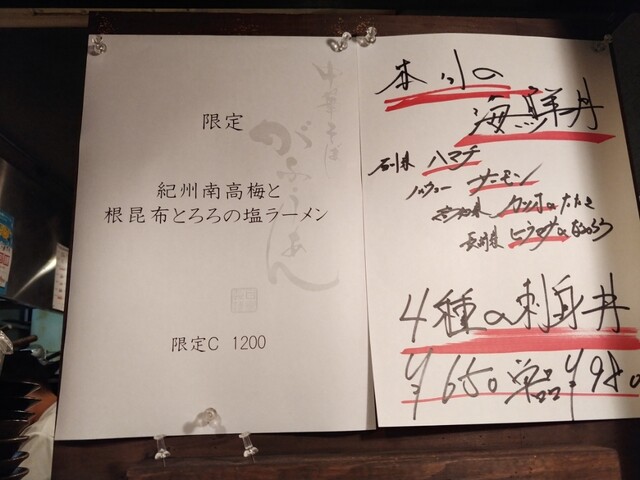 限定
紀州南高梅と
根昆布とろろの塩ラーメン
限定C 1200
中華そば
がふうあん
本日の
海鮮丼
石川県 ハマチ
ノルウェー サーモン
高知県 カツオのたたき
長崎県 ヒラマサの
4種の刺身丼
¥650 単品¥980